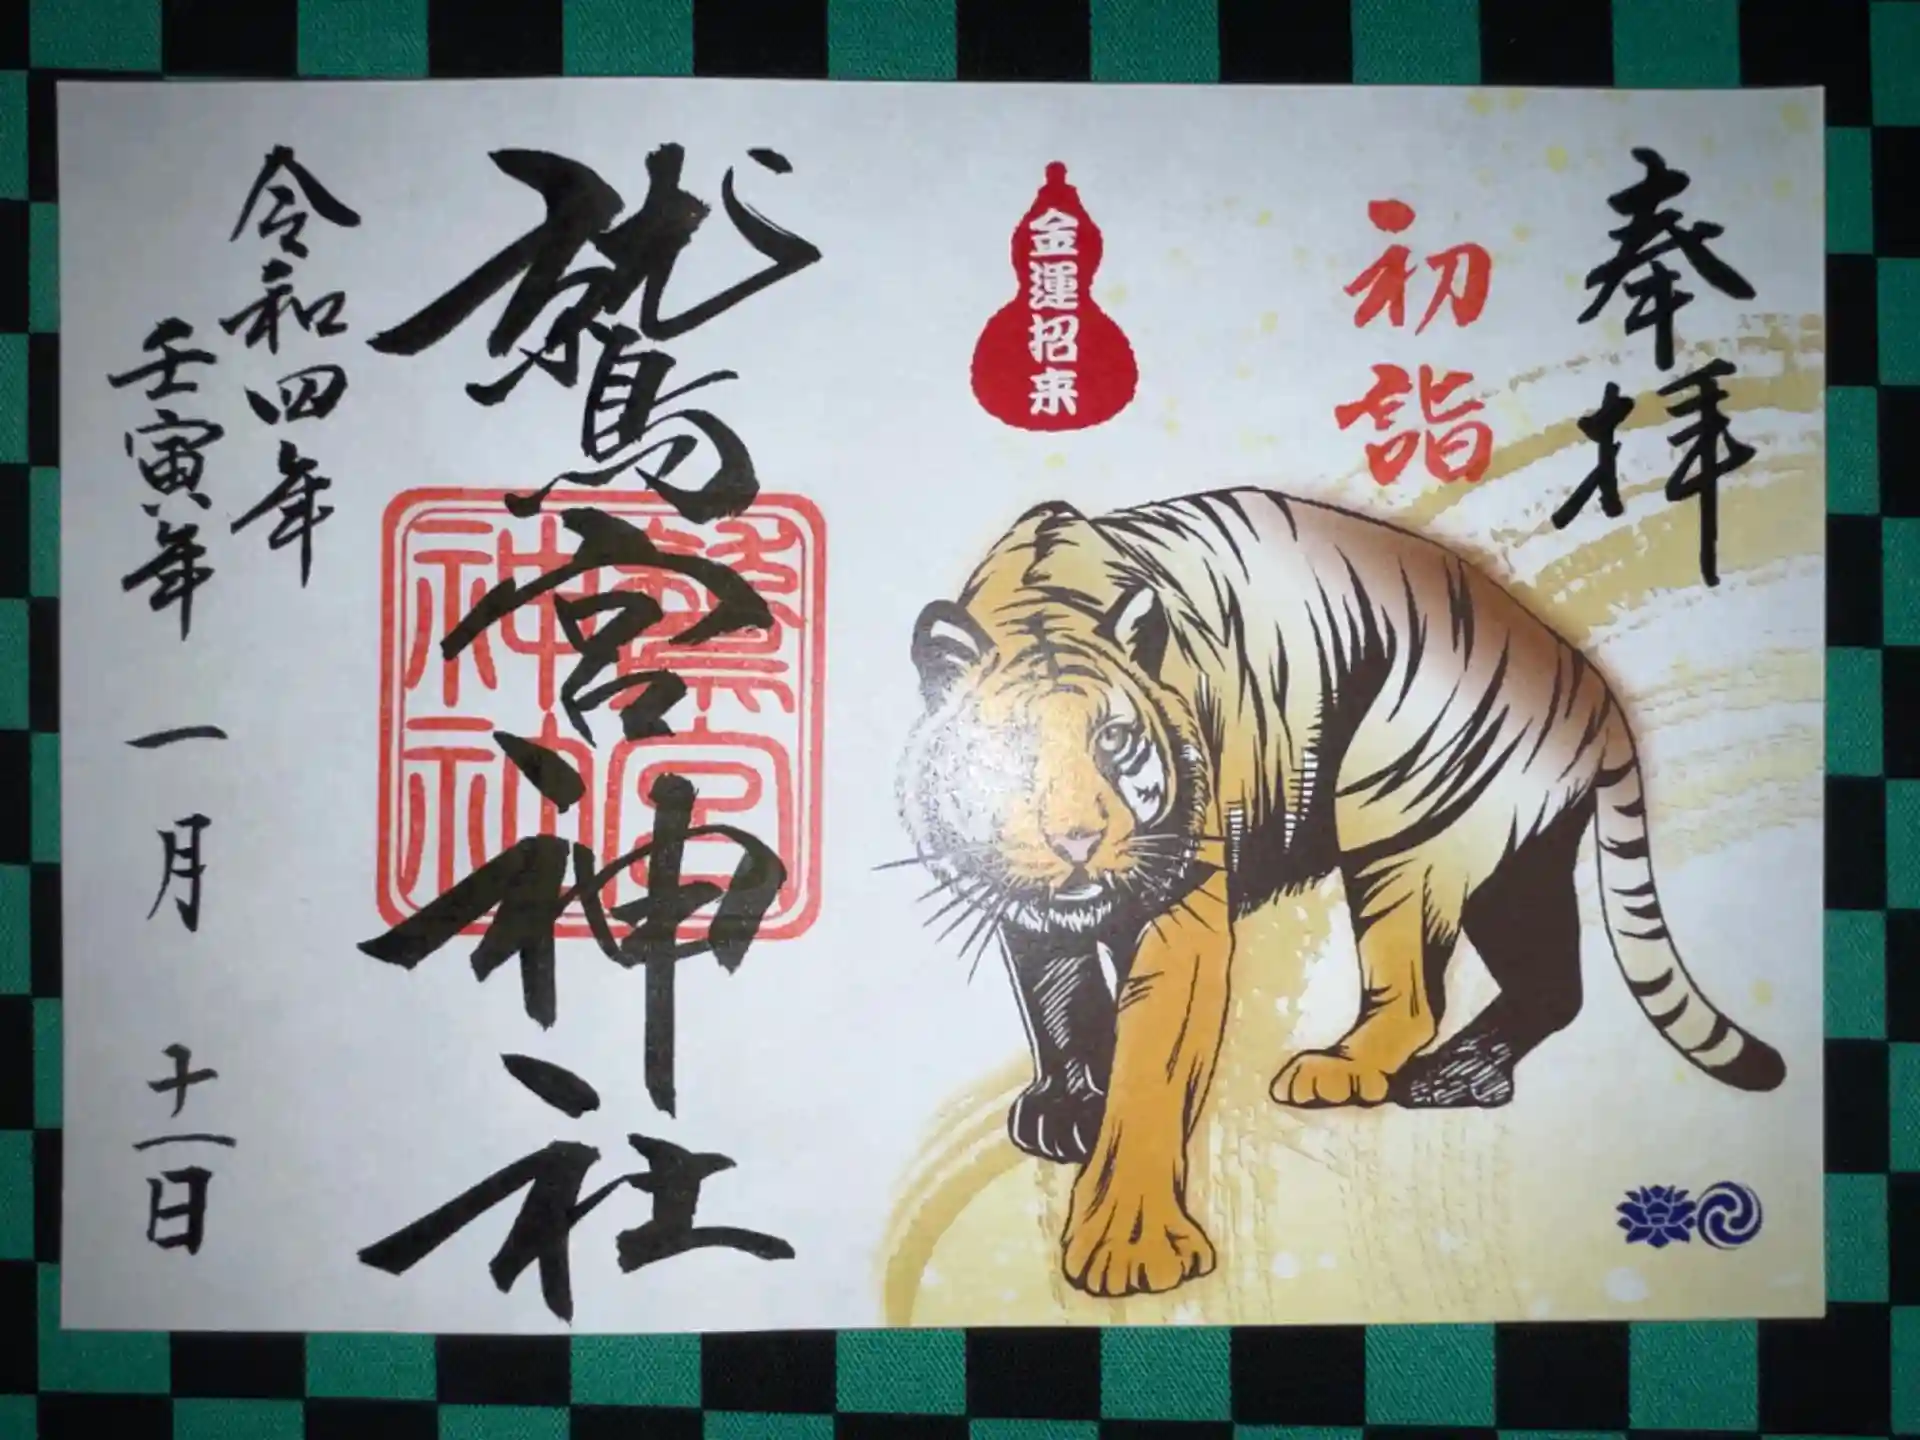 奉拝
初詣
金運招来
鷲宮神社
鷲宮神社
令和四年
壬寅年 一月 十一日